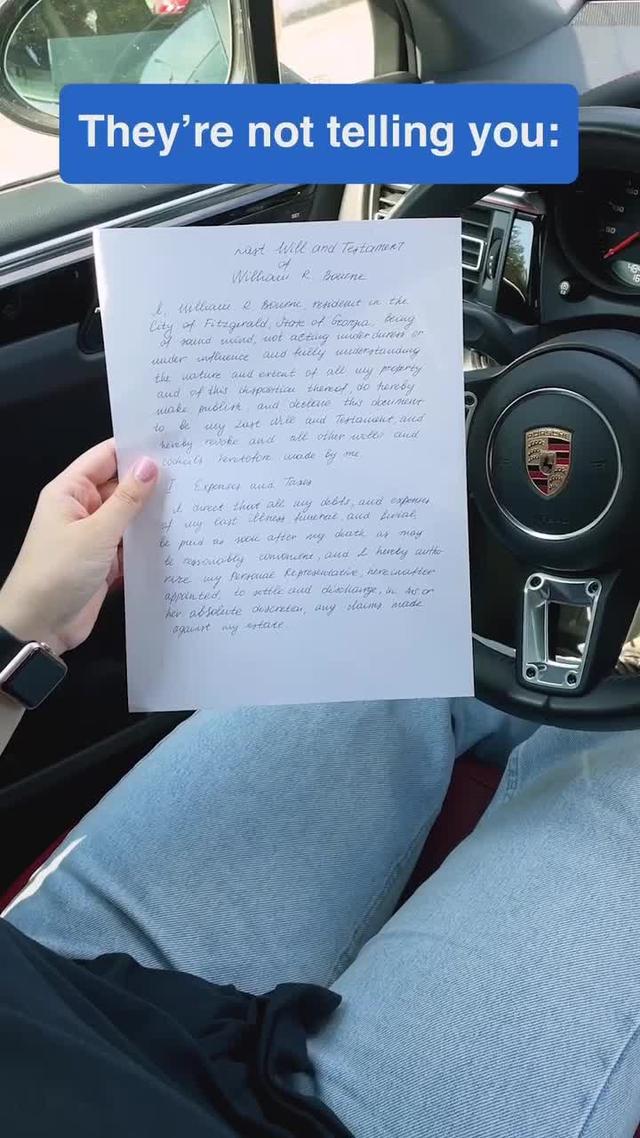 They're not telling you:
Last Will and Testament
of
William R. Bourne
I, William R Bourne, resident in the
City of Fitzgerald, State of Georgia, being
of sound mind, not acting under duress or
under influence and fully understanding
the nature and extent of all my property
and of this disposition thereof, do hereby
make publish, and declare this document
to be my Last Will and Testament, and
hereby revoke and all other wills and
codicils heretofore made by me.
I Expenses and Taxes
I direct that all my debts, and expenses
of my last illness funeral, and burial,
be paid as soon after my death as may
be reasonably convenient, and I hereby autho-
rize my Personal Representative, hereinafter
appointed, to settle and discharge, in his or
her absolute discretion, any claims made
against my estate.